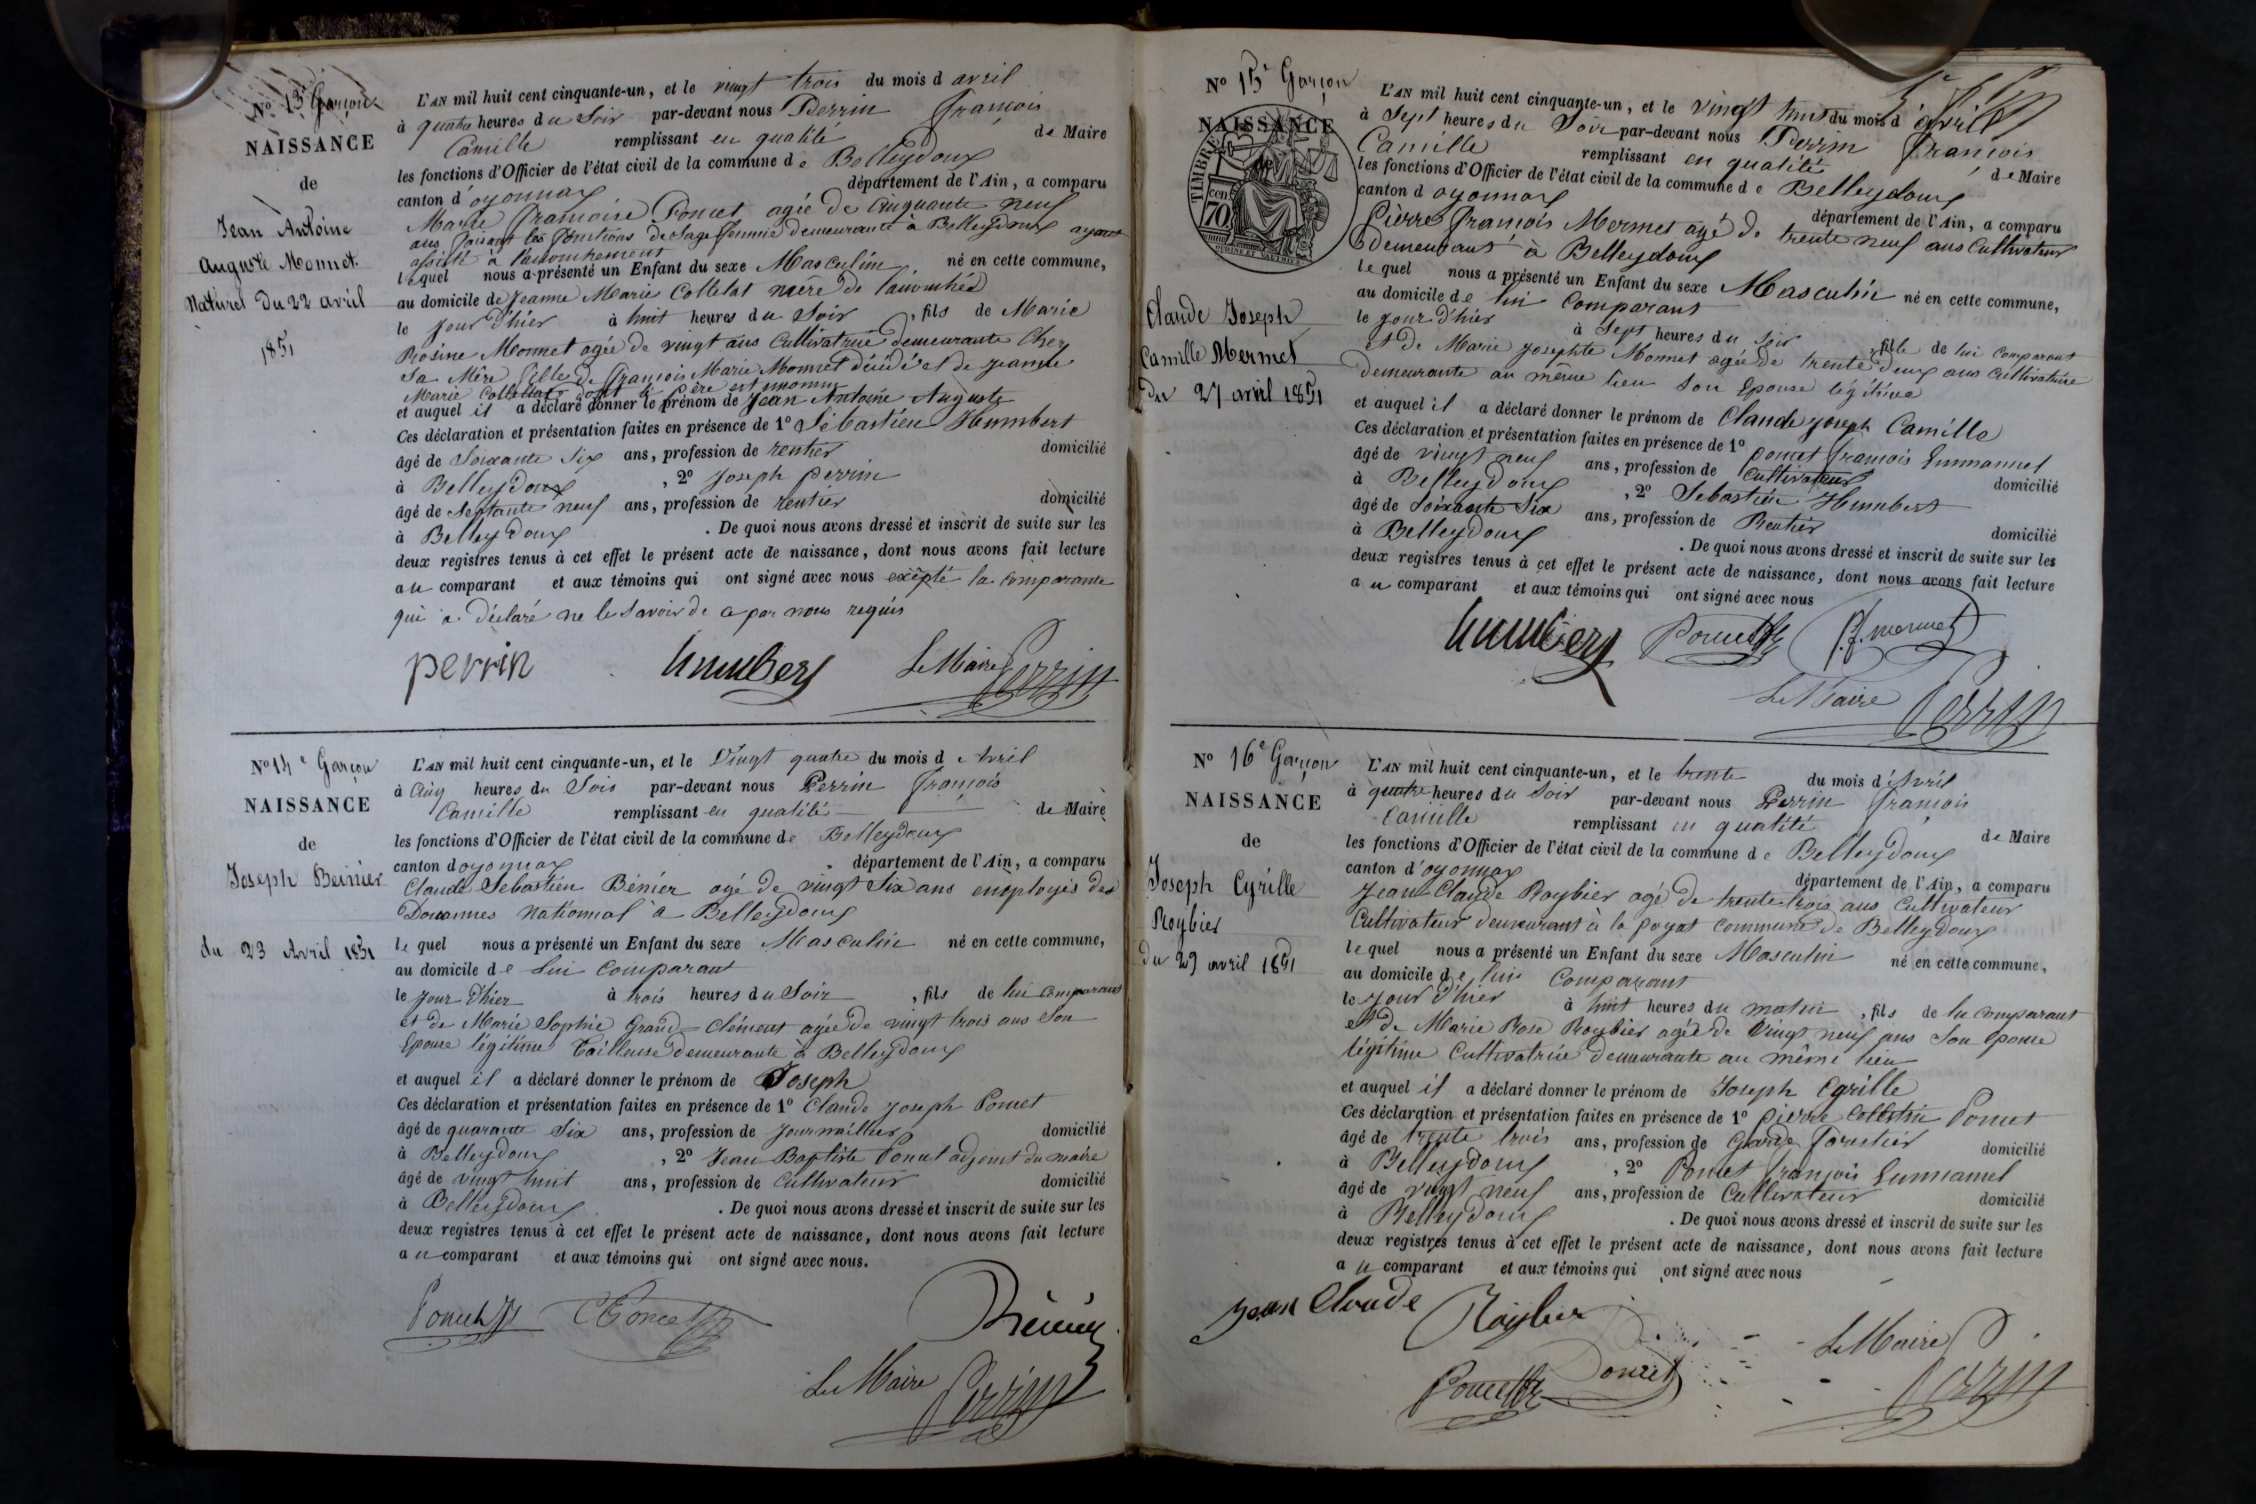 No 13e Garçon
NAISSANCE
de
Jean Antoine
Auguste Monnet.
Naturel du 22 avril
1851
L'AN mil huit cent cinquante-un, et le vingt trois du mois d avril
à quatre heures du Soir par-devant nous Perrin françois
Camille remplissant en qualité de Maire
les fonctions d'Officier de l'état civil de la commune de Belleydoux
canton d'oyonnax département de l'Ain, a comparu
Marie françoise Poncet agée de Cinquante neuf
ans faisant les fonctions de Sage femme demeurante à Belleydoux ayant
assisté à l'accouchement
lequel nous a présenté un Enfant du sexe Masculin né en cette commune,
au domicile de Jeanne Marie Colletat mère de l'accouchée
le jour d'hier à huit heures du Soir, fils de Marie
Rosine Monnet agée de vingt ans Cultivatrice demeurante Chez
Sa Mère fille de françois Marie Monnet décédé et de jeanne
Marie Colletat dont le père est inconnu
et auquel il a déclaré donner le prénom de Jean Antoine Auguste
Ces déclaration et présentation faites en présence de 1o Sébastien Humbert
âgé de Soixante Six ans, profession de rentier domicilié
à Belleydoux, 2o Joseph perrin
âgé de Septante neuf ans, profession de rentier domicilié
à Belleydoux. De quoi nous avons dressé et inscrit de suite sur les
deux registres tenus à cet effet le présent acte de naissance, dont nous avons fait lecture
au comparant et aux témoins qui ont signé avec nous excèpté la comparante
qui a déclaré ne le Savoir de ce par nous requis
perrin Humbert Le Maire Perrin
No 14e Garçon
NAISSANCE
de
Joseph Beinier
du 23 Avril 1851
L'AN mil huit cent cinquante-un, et le Vingt quatre du mois d Avril
à Cinq heures du Soir par-devant nous Perrin françois
Camille remplissant en qualité de Maire
les fonctions d'Officier de l'état civil de la commune de Belleydoux
canton d oyonnax département de l'Ain, a comparu
Claude Sebastien Bénier agé de vingt Six ans employés des
Douannes national à Belleydoux
lequel nous a présenté un Enfant du sexe Masculin né en cette commune,
au domicile de lui Comparant
le jour d'hier à trois heures du Soir, fils de lui comparant
et de Marie Sophie Grand-Clément agée de vingt trois ans Son
Epouse légitime Tailleuse demeurante à Belleydoux
et auquel il a déclaré donner le prénom de Joseph
Ces déclaration et présentation faites en présence de 1o Claude Joseph Poncet
âgé de quarante Six ans, profession de journaillier domicilié
à Belleydoux, 2o Jean Baptiste Poncet adjoint du maire
âgé de vingt huit ans, profession de Cultivateur domicilié
à Belleydoux. De quoi nous avons dressé et inscrit de suite sur les
deux registres tenus à cet effet le présent acte de naissance, dont nous avons fait lecture
au comparant et aux témoins qui ont signé avec nous.
Poncet Poncet Bénier
Le Maire Perrin
No 15e Garçon
NAISSANCE
TIMBRE
cen
70
Claude Joseph
Camille Mermet
du 27 avril 1851
L'AN mil huit cent cinquante-un, et le vingt huit du mois d'avril
à Sept heures du Soir par-devant nous Perrin françois
Camille remplissant en qualité de Maire
les fonctions d'Officier de l'état civil de la commune de Belleydoux
canton d oyonnax département de l'Ain, a comparu
Pierre françois Mermet agé de trente neuf ans Cultivateur
demeurant à Belleydoux
lequel nous a présenté un Enfant du sexe Masculin né en cette commune,
au domicile de lui Comparant
le jour d'hier à Sept heures du Soir, fils de lui comparant
et de Marie josephte Monnet agée de trente deux ans Cultivatrice
demeurante au même lieu Son Epouse légitime
et auquel il a déclaré donner le prénom de Claude joseph Camille
Ces déclaration et présentation faites en présence de 1o poncet françois Emmanuel
âgé de vingt neuf ans, profession de Cultivateur domicilié
à Belleydoux, 2o Sebastien Humbert
âgé de Soixante Six ans, profession de Rentier domicilié
à Belleydoux. De quoi nous avons dressé et inscrit de suite sur les
deux registres tenus à cet effet le présent acte de naissance, dont nous avons fait lecture
au comparant et aux témoins qui ont signé avec nous
Humbert Poncet p.f. mermet
Le Maire Perrin
No 16e Garçon
NAISSANCE
de
Joseph Cyrille
Roybier
du 29 avril 1851
L'AN mil huit cent cinquante-un, et le trente du mois d'Avril
à quatre heures du Soir par-devant nous Perrin françois
Camille remplissant en qualité de Maire
les fonctions d'Officier de l'état civil de la commune de Belleydoux
canton d'oyonnax département de l'Ain, a comparu
Jean Claude Roybier agé de trente trois ans Cultivateur
Cultivateur demeurant à la poyat commune de Belleydoux
lequel nous a présenté un Enfant du sexe Masculin né en cette commune,
au domicile de lui Comparant
le jour d'hier à huit heures du matin, fils de lui comparant
et de Marie Rose Roybier agée de Vingt neuf ans Son épouse
légitime Cultivatrice demeurante au même lieu
et auquel il a déclaré donner le prénom de Joseph Cyrille
Ces déclaration et présentation faites en présence de 1o pierre Célestin Poncet
âgé de trente trois ans, profession de Garde forestier domicilié
à Belleydoux, 2o Poncet françois Emmanuel
âgé de vingt neuf ans, profession de Cultivateur domicilié
à Belleydoux. De quoi nous avons dressé et inscrit de suite sur les
deux registres tenus à cet effet le présent acte de naissance, dont nous avons fait lecture
au comparant et aux témoins qui ont signé avec nous
Jean Claude Roybier
Le Maire Perrin
Poncet Poncet